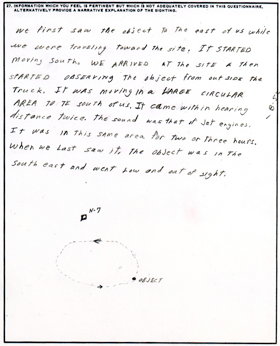 27. INFORMATION WHICH YOU FEEL IS PERTINENT BUT WHICH IS NOT ADEQUATELY COVERED IN THIS QUESTIONNAIRE,
ALTERNATIVELY PROVIDE A NARRATIVE EXPLANATION OF THE SIGHTING.
We first saw the object to the east of us while
we were traveling toward the site. IT STARTED
Moving South. WE ARRIVED AT the SITE & then
STARTED OBSERVING The object from outside the
Truck. It was moving in a LARGE CIRCULAR
AREA TO TE south of us. It came within hearing
distance twice. The sound was that of Jet engines.
It was in this same area for two or three hours.
When we last saw it, the object was in the
South east and went low and out of sight.
N-7
OBJECT